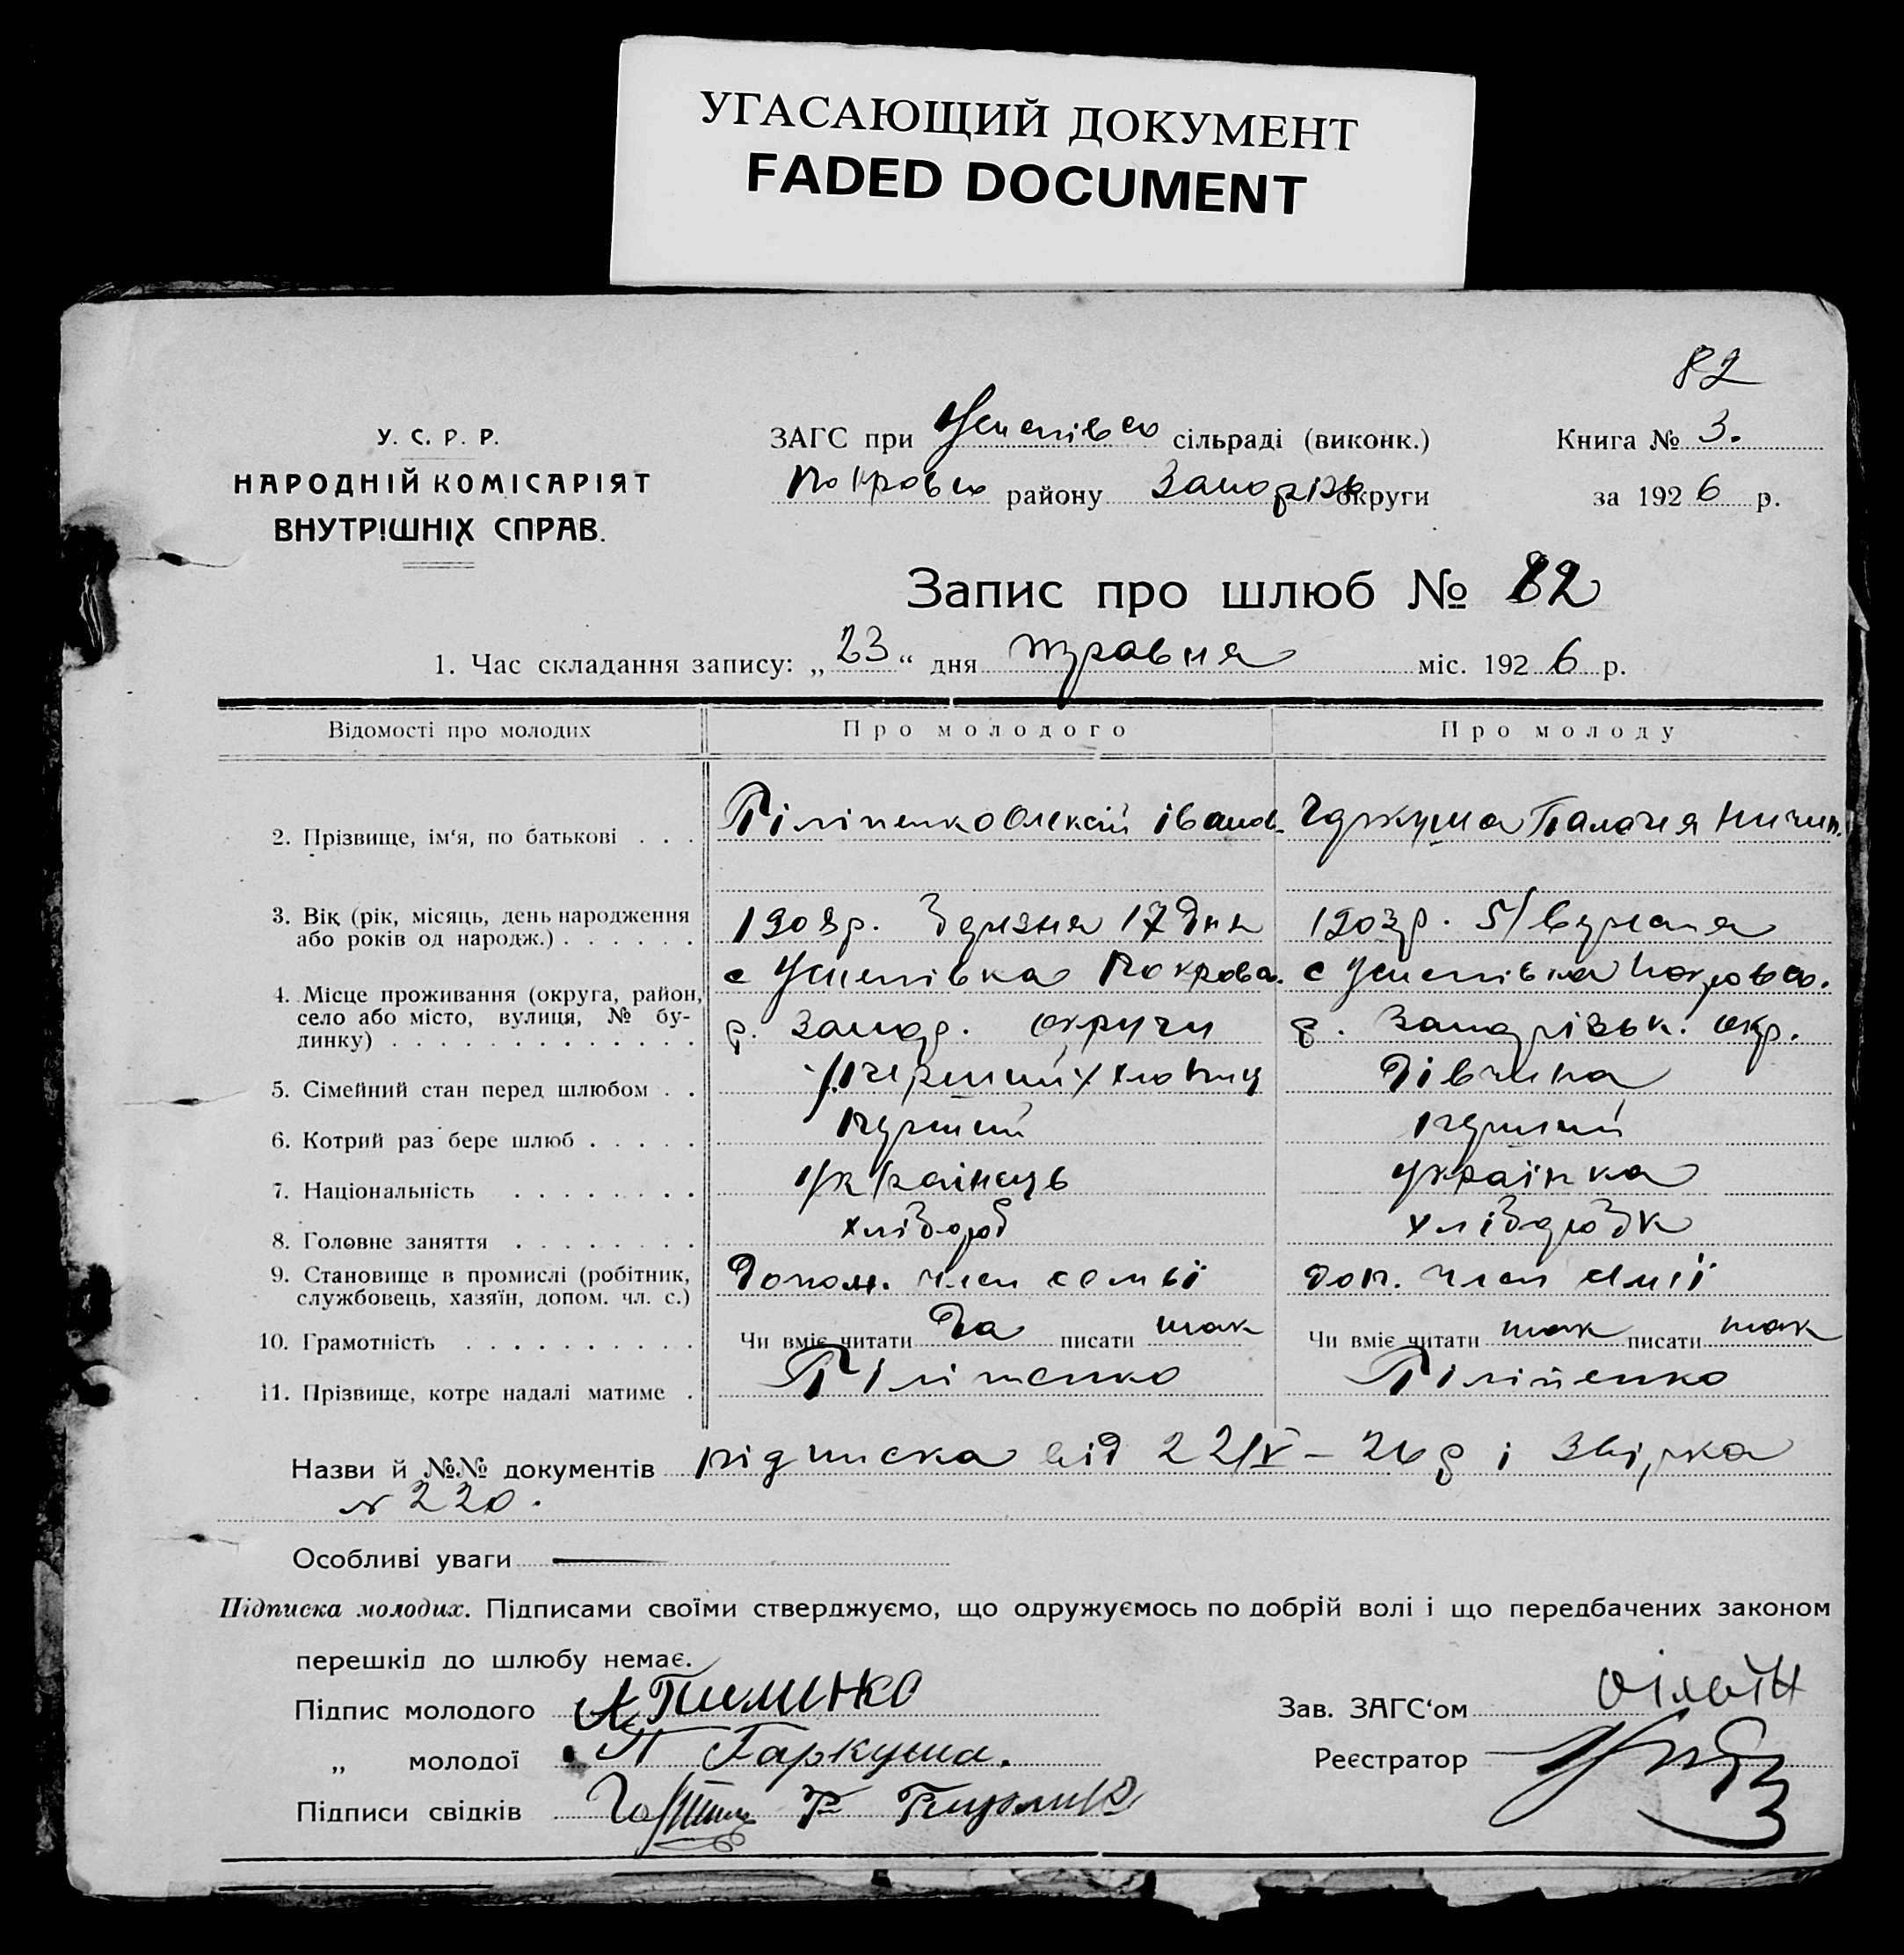 УГАСАЮЩИЙ ДОКУМЕНТ
FADED DOCUMENT
82
У. С. Р. Р.
НАРОДНІЙ КОМІСАРІЯТ
ВНУТРІШНІХ СПРАВ.
ЗАГС при Успенівсь сільраді (виконк.)
Покровсь району Запоріж округи
Книга № 3.
за 1926 р.
Запис про шлюб № 82
1. Час складання запису: „23“ дня травня міс. 1926 р.
Відомості про молодих Про молодого Про молоду
2. Прізвище, ім‘я, по батькові . . . Піліпенко Олексій Іванов. Гаркуша Палагия Ничип.
3. Вік (рік, місяць, день народження
або років од народж.) . . . . . . 1908р. Березня 17 дня 1903р. 5/ вересня
4. Місце проживання (округа, район,
село або місто, вулиця, № бу-
динку) . . . . . . . . . . . . .
с Успенівка Покровсь. с Успенівка Покровсь.
р. Запор. округи р. Запорізьк. окр.
5. Сімейний стан перед шлюбом . . хлопец Дівчина
6. Котрий раз бере шлюб . . . . . перший перший
7. Національність . . . . . . . українець українка
8. Головне заняття . . . . . . . . хлібороб хліборобк
9. Становище в промислі (робітник,
службовець, хазяїн, допом. чл. с.) Допом. член семьї доп. член сімії
10. Грамотність . . . . . . . . . . Чи вміє читати Да писати так Чи вміє читати так писати так
11. Прізвище, котре надалі матиме . Піліпенко Піліпенко
Назви й №№ документів підписка від 22/V – 26 р і Звірка
№ 220.
Особливі уваги
Підписка молодих. Підписами своїми стверджуємо, що одружуємось по добрій волі і що передбачених законом
перешкід до шлюбу немає.
Підпис молодого
Зав. ЗАГС‘ом
„ молодої П Гаркуша.
Реєстратор
Підписи свідків